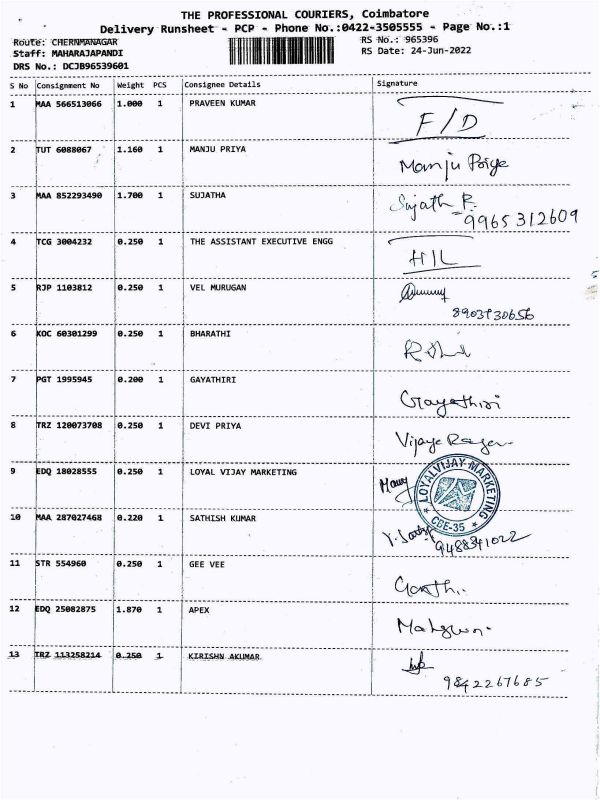 THE PROFESSIONAL COURIERS, Coimbatore
Delivery Runsheet - PCP - Phone No.:0422-3505555 - Page No.:1
Route: CHERNMANAGAR RS No.: 965396
Staff: MAHARAJAPANDI RS Date: 24-Jun-2022
DRS No.: DCJB96539601
S No Consignment No Weight PCS Consignee Details Signature
1 MAA 566513066 1.000 1 PRAVEEN KUMAR
F/D
2 TUT 6088067 1.160 1 MANJU PRIYA
Manju Poige
3 MAA 852293490 1.700 1 SUJATHA
Sujath R.
9965312609
4 TCG 3004232 0.250 1 THE ASSISTANT EXECUTIVE ENGG
H/L
5 RJP 1103812 0.250 1 VEL MURUGAN
6 KOC 60301299 0.250 1 BHARATHI
7 PGT 1995945 0.200 1 GAYATHIRI
Gayathiri
8 TRZ 120073708 0.250 1 DEVI PRIYA
Vijaye
9 EDQ 18028555 0.250 1 LOYAL VIJAY MARKETING
LOYALVIJAY MARKETING
CBE-35
10 MAA 287027468 0.220 1 SATHISH KUMAR
9488341022
11 STR 554960 0.250 1 GEE VEE
12 EDQ 25082875 1.870 1 APEX
13 TRZ 113258214 0.250 1 KIRISHN AKUMAR
9842267685